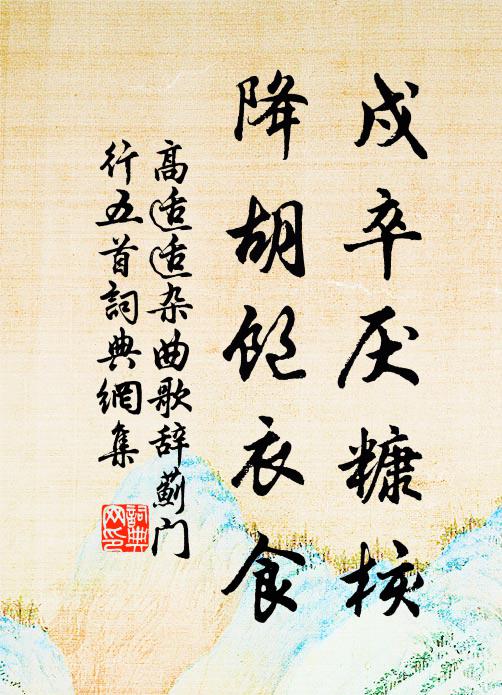 戍卒厌糠核
降胡饱衣食
高适适杂曲歌辞蓟门
行五首詞典網集
詞典
网印